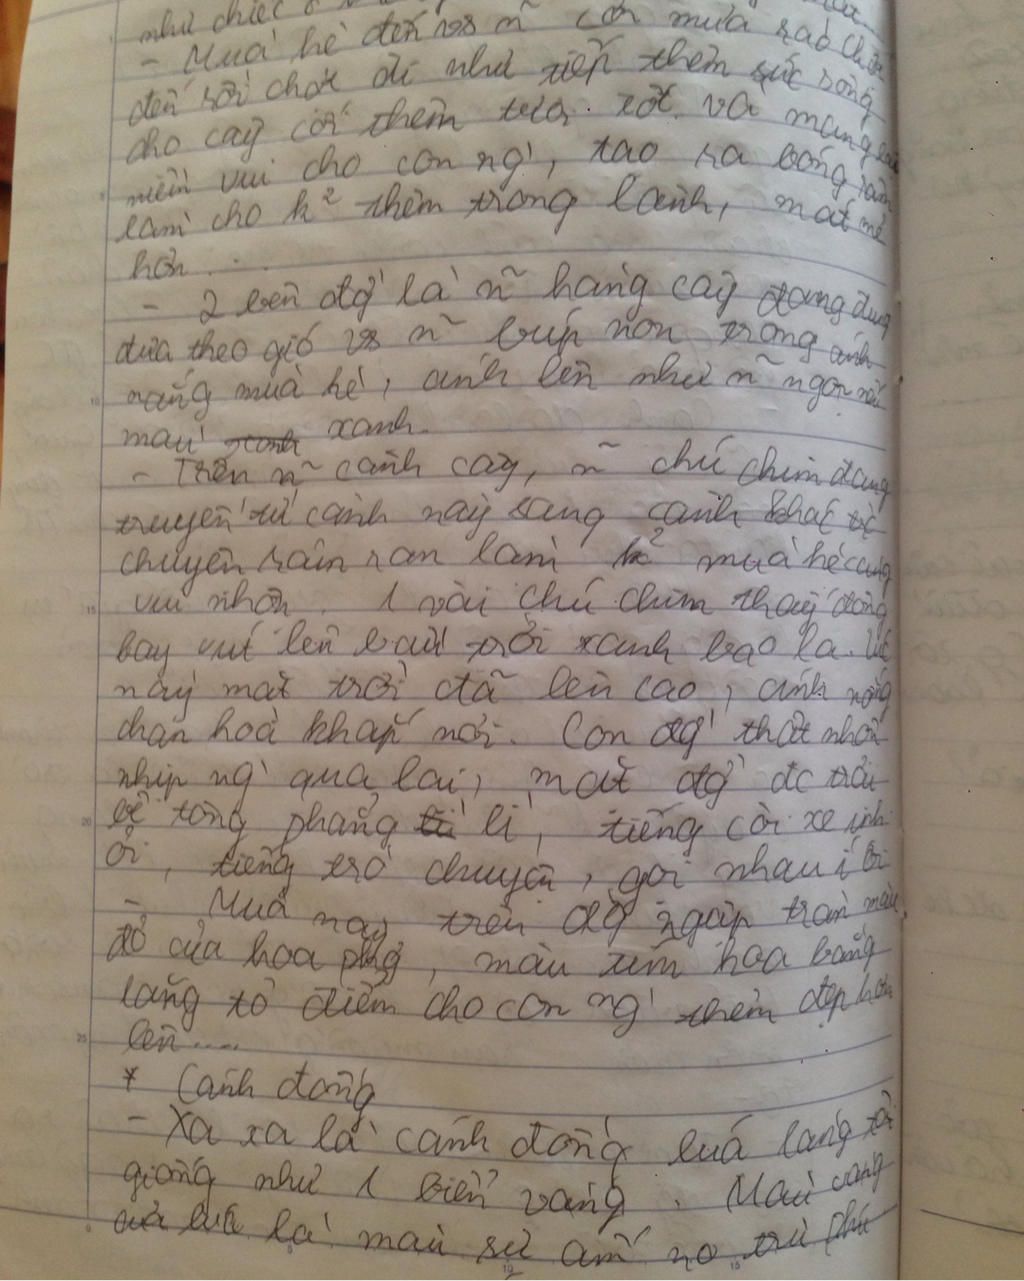 như chiếc
- Mùa hè đến vs ~n cơn mưa rào chợt
đến rồi chợt đi như tiếp thêm sức sống
cho cây cối thêm tươi tốt và mang lại
niềm vui cho con ng', tạo ra bóng râm
làm cho k² thêm trong lành, mát mẻ
hơn....
- 2 bên đg' là ~n hàng cây đang đung
đưa theo gió vs ~n búp non trong ánh
nắng mùa hè, ánh lên như ~n ngọn nến
màu xanh.
- Trên ~n cành cây, ~n chú chim đang
truyền từ cành này sang cành khác trò
chuyện râm ran làm k² mùa hè càng
vui nhộn. 1 vài chú chim thấy động
bay vút lên bầu trời xanh bao la. Lúc
này mặt trời đã lên cao, ánh nắng
chan hoà khắp nơi. Con đg' thật nhộn
nhịp ng' qua lại, mặt đg' đc trải
bê tông phẳng lì, tiếng còi xe inh
ỏi, tiếng trò chuyện, gọi nhau í ới
- Mùa này trên đg' ngập tràn màu
đỏ của hoa phg, màu tím hoa bằng
lăng tô điểm cho con ng' thêm đẹp hơn
lên....
* Cánh đồng
- Xa xa là cánh đồng lúa láng
giống như 1 biển vàng. Màu vàng
của lúa là màu sự ấm no trù phú